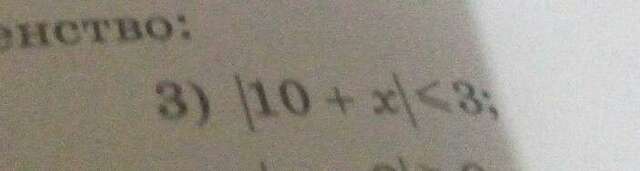 енство:
3) |10 + x|<3;